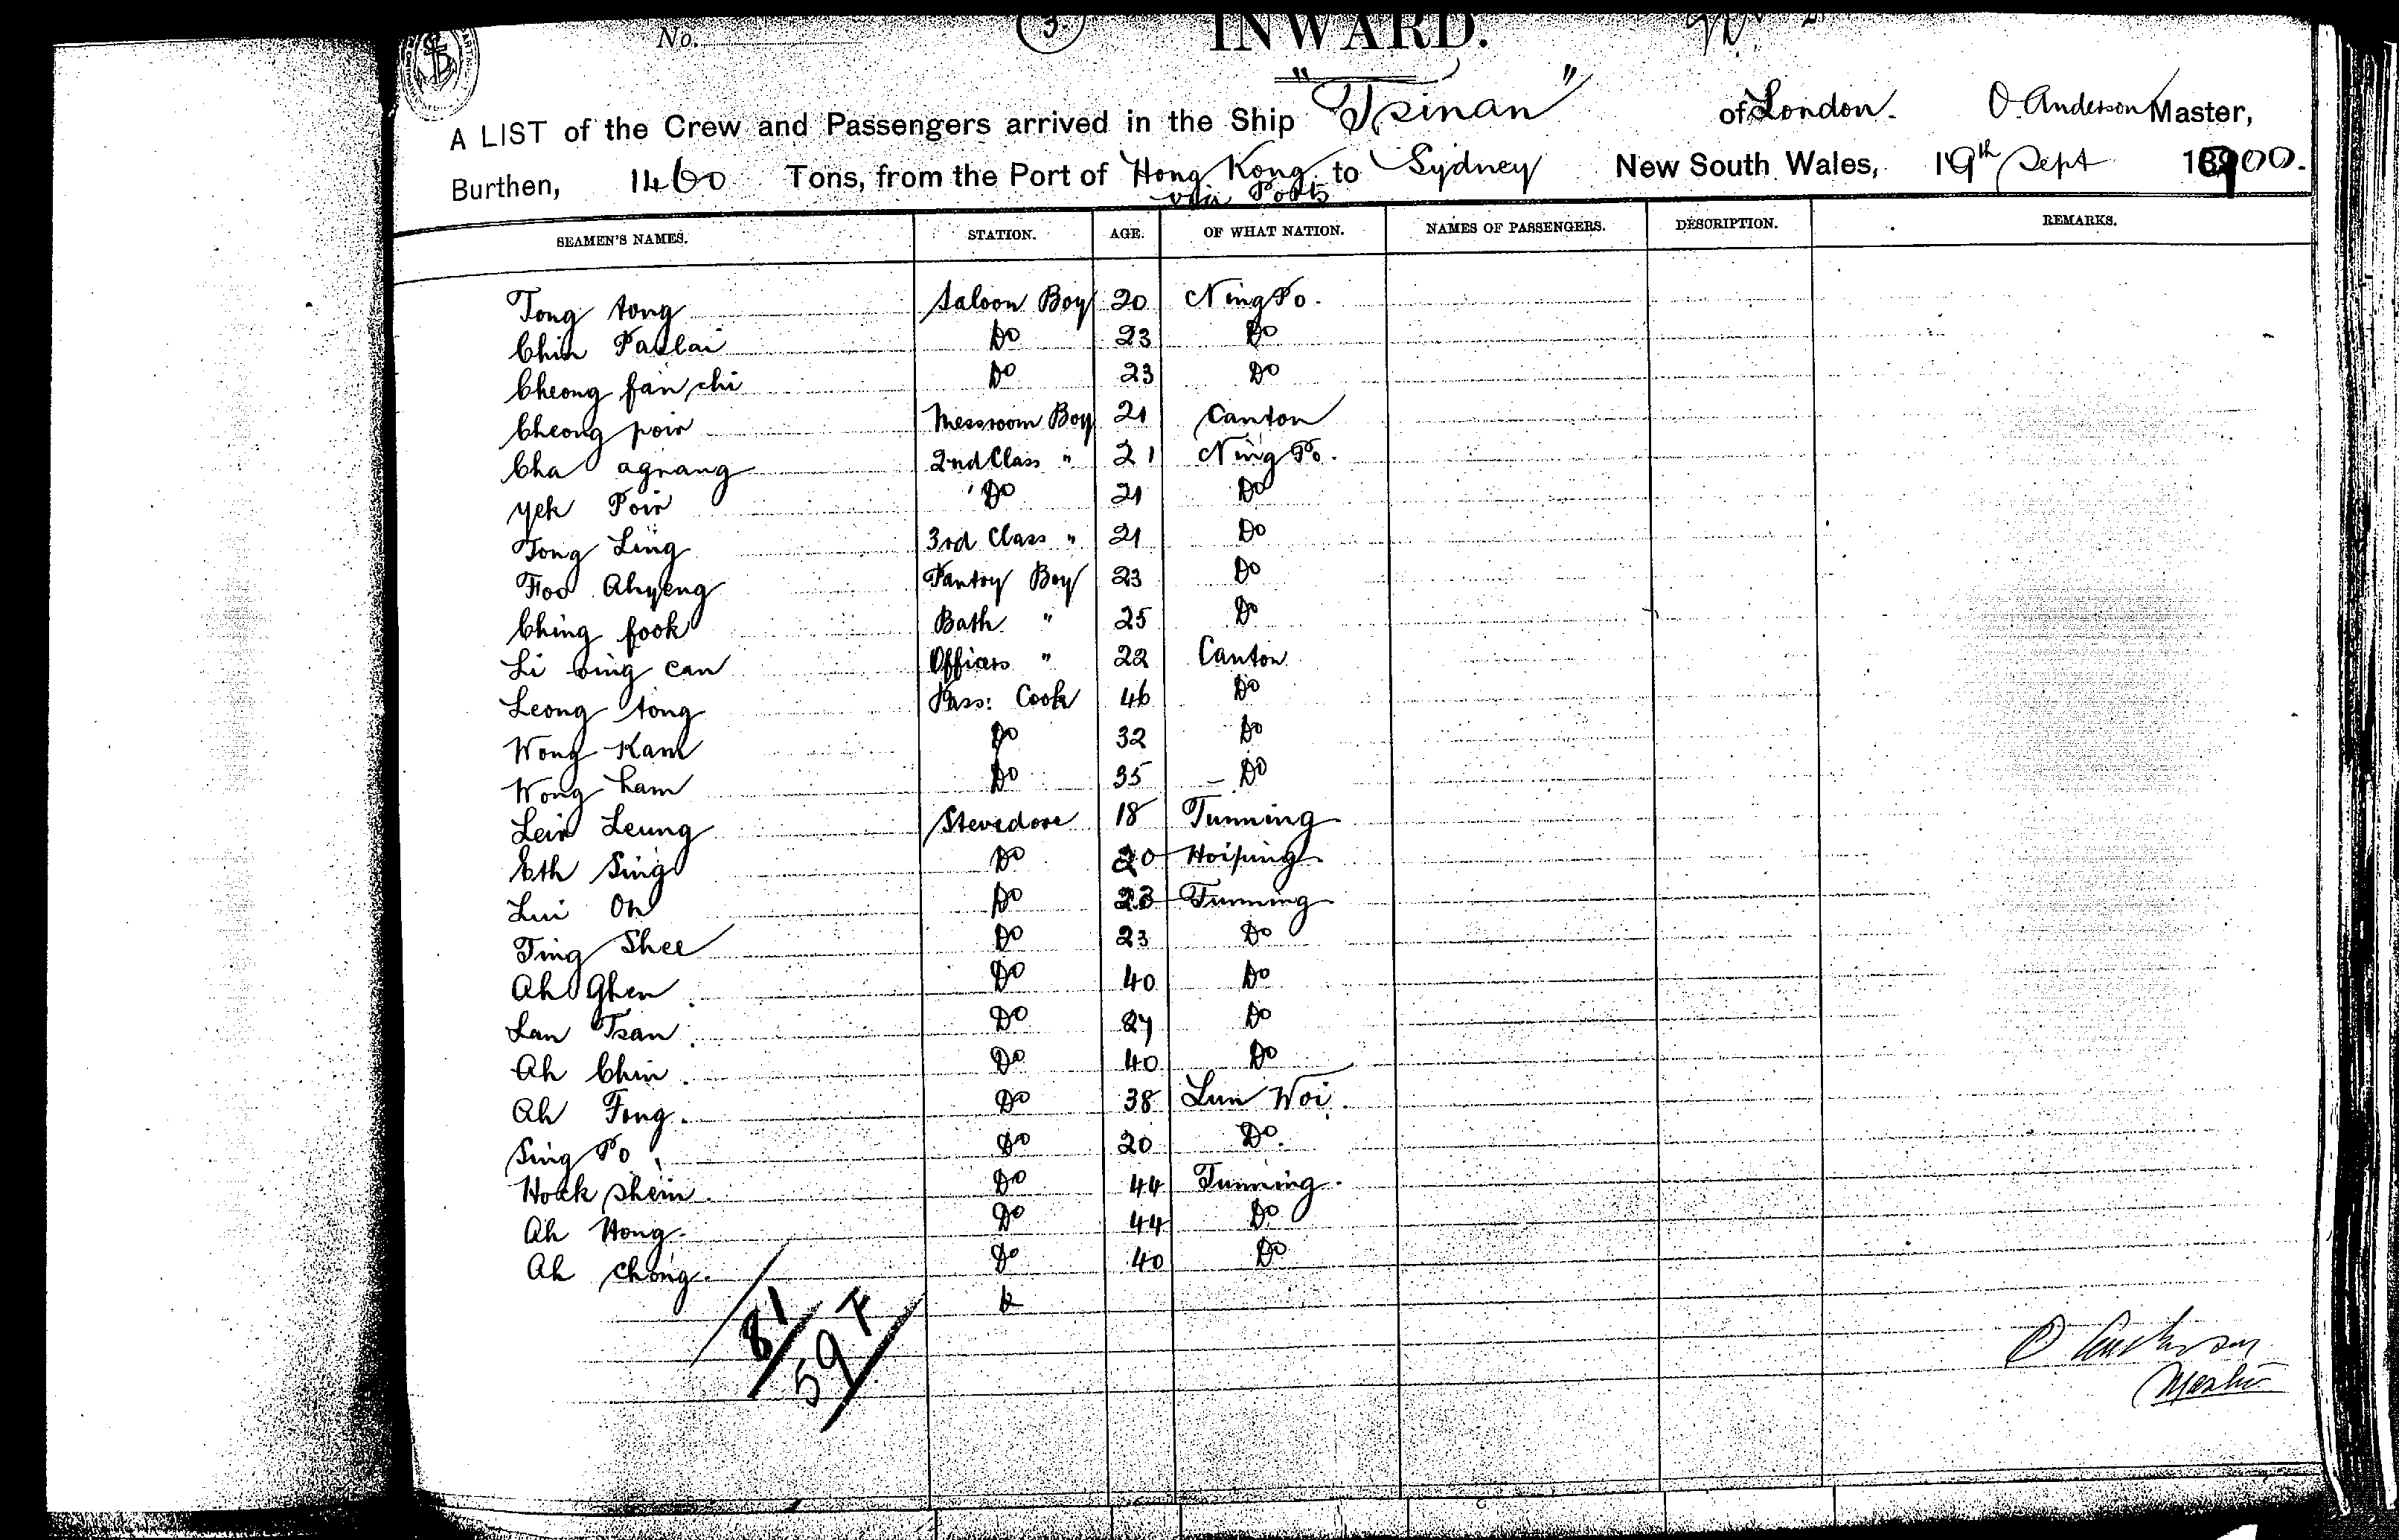 No. 3. INWARD.
A LIST of the Crew and Passengers arrived in the Ship "Tsinan" of London. O. Anderson Master,
Burthen, 1460 Tons, from the Port of Hong Kong to Sydney New South Wales, 19th Sept 1900.
via Ports
SEAMEN'S NAMES. STATION. AGE. OF WHAT NATION. NAMES OF PASSENGERS. DESCRIPTION. REMARKS.
Tong tong Saloon Boy 20 Ning Po.
Chin Paulai Do 23 Do
Cheong fan chi Do 23 Do
Cheong poir Messroom Boy 21 Canton
Cha agnang 2nd Class " 21 Ning Po.
Yek Poir Do 21 Do
Tong Ling 3rd Class " 21 Do
Foo Ahyeng Pantry Boy 23 Do
Ching fook Bath " 25 Do
Li wing can Officers " 22 Canton
Leong tong Pass: Cook 46 Do
Wong Kam Do 32 Do
Wong ham Do 35 Do
Leir Leung Stevedore 18 Tunning
Eth Sing Do 20 Hoiping
Lui On Do 23 Tunning
Ting Shee Do 23 Do
Ah Ghen Do 40 Do
Lan Tsan Do 27 Do
Ah Chin Do 40 Do
Ah Fong. Do 38 Lun Woi.
Sing Po Do 20 Do.
Hock shein. Do 44 Tunning.
Ah Hong. Do 44 Do
Ah chong. Do 40 Do
81
59 F
O Anderson
Master